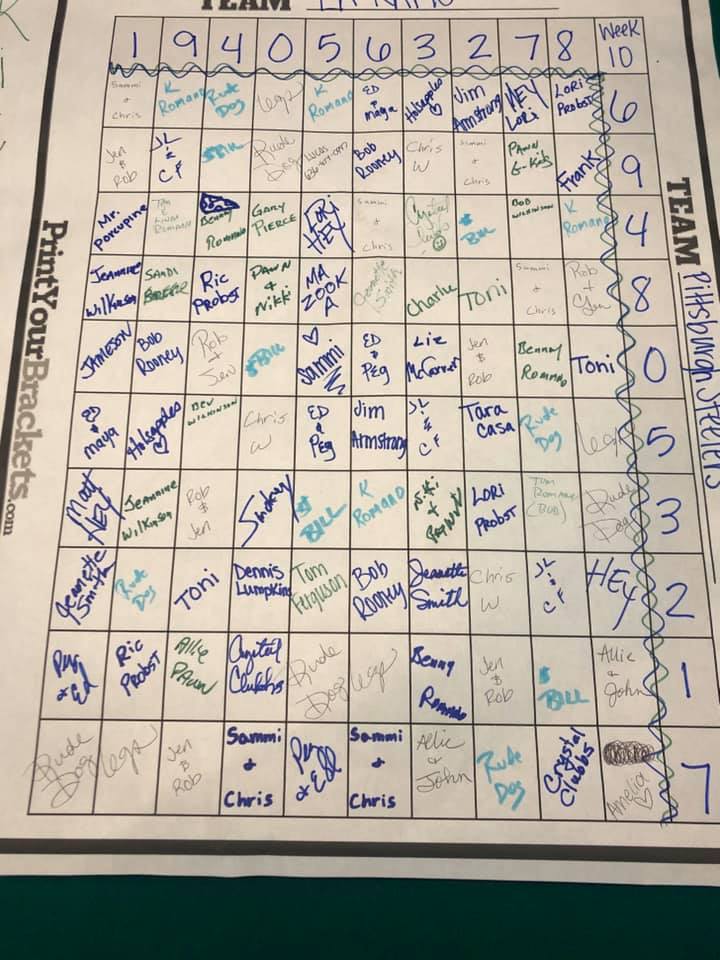 TEAM LA RAMS
1 9 4 0 5 6 3 2 7 8 Week 10
Sammi + Chris K Romano Rude Dog Legs K Romano ED & maya Holsapples Jim Armstrong HEY Lori LORI PROBST 6
Jen & Rob JL & CF $Bill Rude Dog Bob Rooney Chris W Sammi + Chris PAWN Frank 9
Mr. Porcupine Romano Benny Romano Gary PIERCE LORI HEY Sammi + Chris Crystal $ Bill BOB WILKINSON K Romano 4
Jeannine Wilkinson SANDI Ric PROBST DAWN & Nikki MA ZOOK A Jeanette Smith Charlie Toni Sammi + Chris Rob + 8
JAMESON Bob Rooney Rob + Jen $Bill Sammi ED & PEg Liz Jen & Rob Benny Romano Toni 0
ED & maya Holsapples BEV WILKINSON Chris W ED & PEg Jim Armstrong JL & CF Tara Casa Rude Dog Legs 5
Matt HEY Jeannine Wilkinson Rob & Jen $ BILL K ROMANO Nikki + LORI PROBST Tom Romano (BUD) Rude Dog 3
Jeanette Smith Rude Dog TONI Dennis Lumpkins Tom Ferguson Bob Rooney Jeanette Smith Chris W JL & CF HEY 2
Peg & Ed Ric PROBST Allie Crystal Clubbs Rude Dog Legs Benny Romano Jen & Rob $ BILL Allie & John 1
Rude Dog Legs Jen & Rob Sammi & Chris Peg & Ed Sammi & Chris Allie & John Rude Dog Crystal Clubbs Amelia 7
TEAM Pittsburgh Steelers
PrintYourBrackets.com